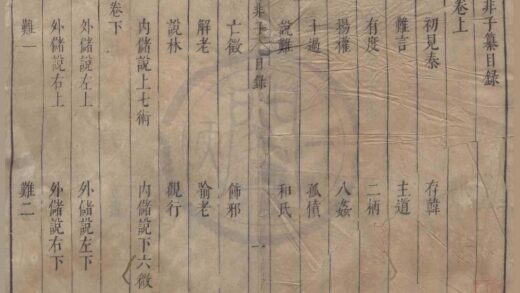 非子纂目錄
卷上
初見秦 存韓
難言 主道
有度 二柄
揚權 八姦
十過 孤憤
說難 和氏
非子 目錄 一
亡徵 飾邪
解老 喻老
說林 觀行
內儲說上七術 內儲說下六微
卷下
外儲說左上 外儲說左下
外儲說右上 外儲說右下
難一 難二